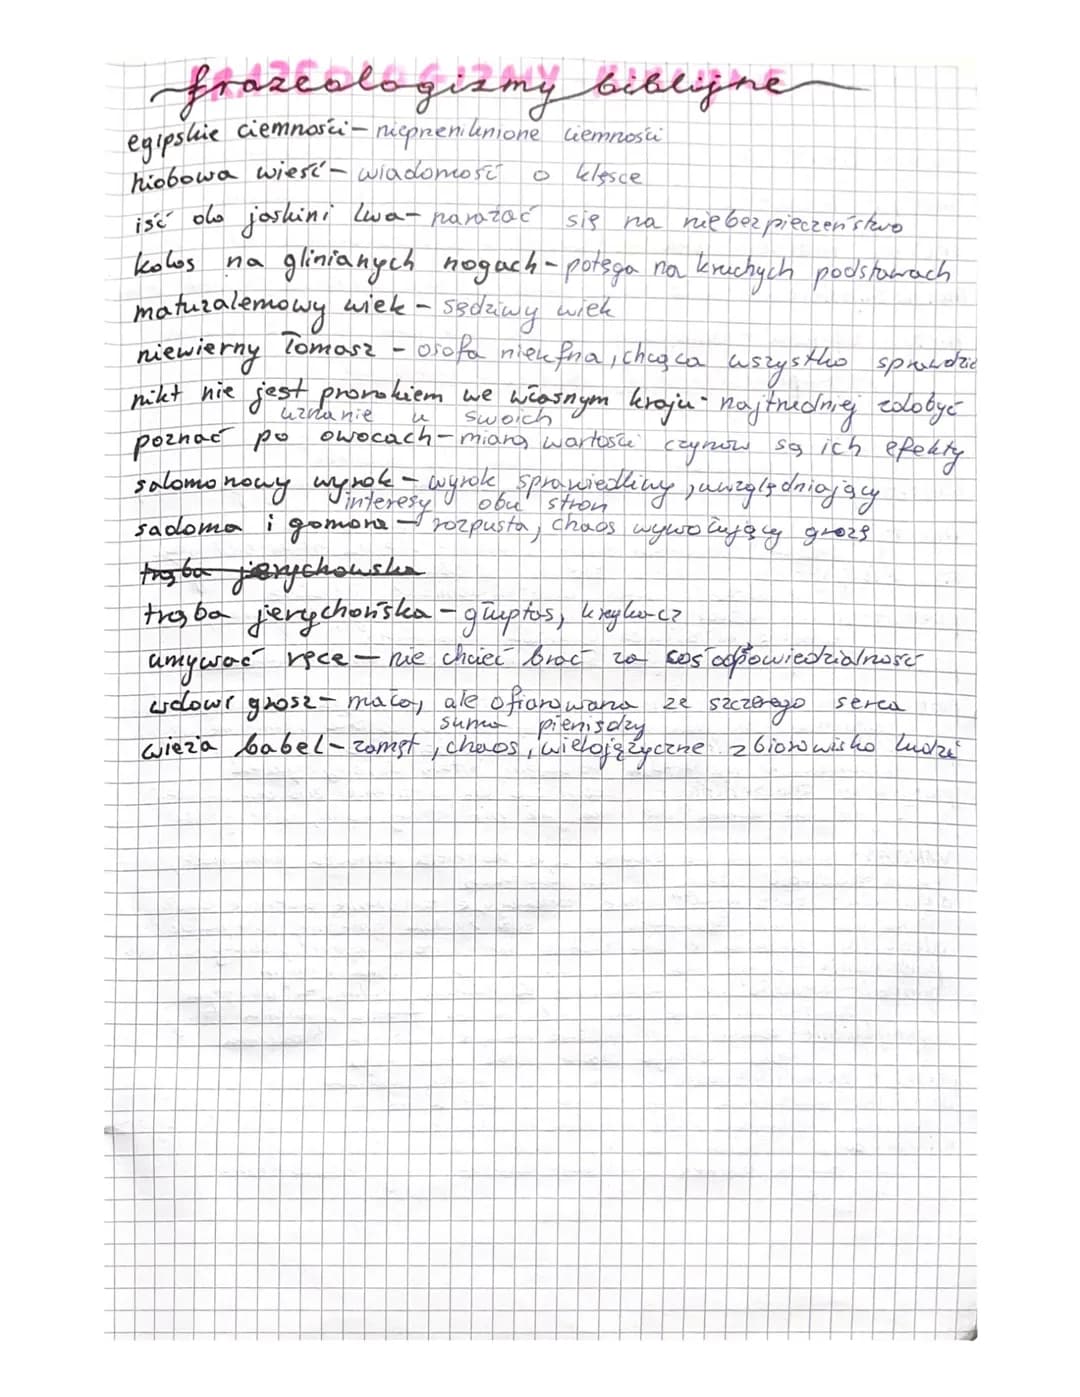 frazeologizmy biblijne
egipskie ciemności – nieprzeniknione ciemności
hiobowa wieść – wiadomość o klęsce
iść do jaskini lwa – narażać się na niebezpieczeństwo
kolos na glinianych nogach – potęga na kruchych podstawach
matuzalemowy wiek – sędziwy wiek
niewierny Tomasz – osoba nieufna, chcąca wszystko sprawdzić
nikt nie jest prorokiem we własnym kraju - najtrudniej zdobyć
uznanie u swoich
poznać po owocach – miarą wartości czynów są ich efekty
salomonowy wyrok – wyrok sprawiedliwy, uwzględniający
interesy obu stron
sadoma i gomora – rozpusta, chaos wywołujący grozę
trąba jerychowska
trąba jerychońska – głuptas, krzykacz
umywać ręce – nie chcieć brać za coś odpowiedzialność
wdowi grosz – mała, ale ofiarowana ze szczerego serca
suma pieniędzy
wieża babel – zamęt, chaos, wielojęzyczne zbiorowisko ludzi